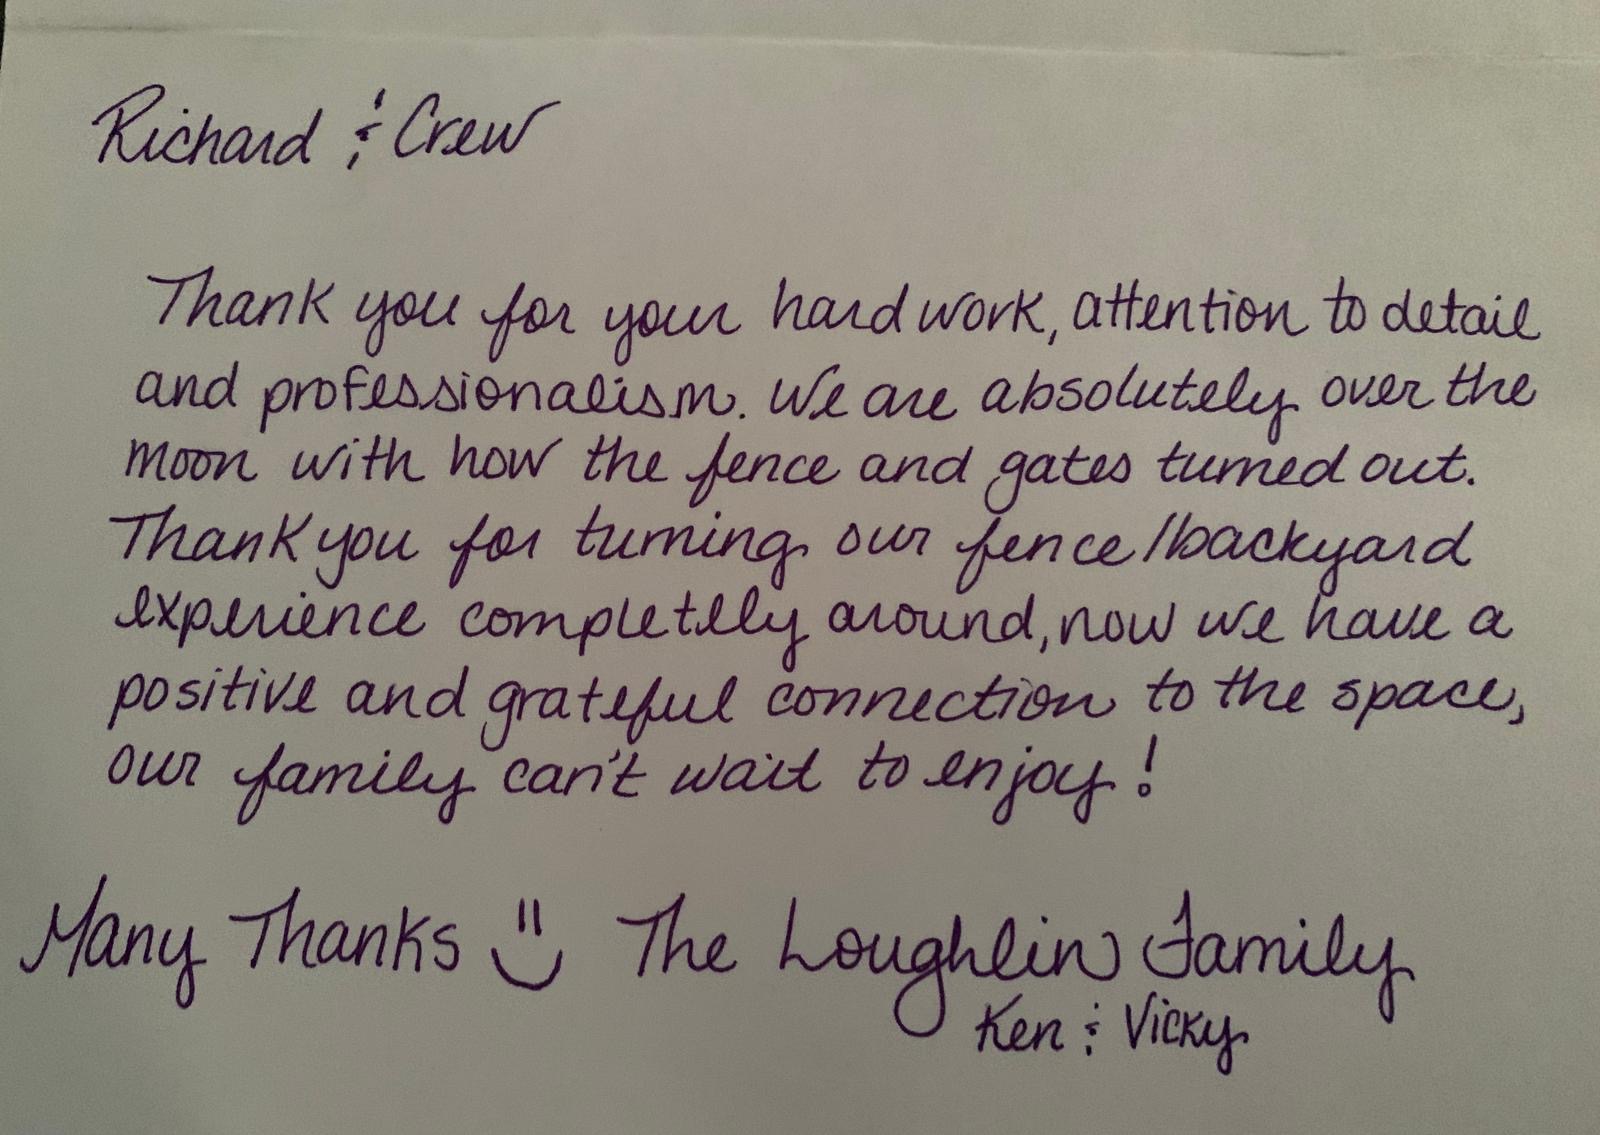 Richard & Crew
Thank you for your hard work, attention to detail
and professionalism. We are absolutely over the
moon with how the fence and gates turned out.
Thank you for turning our fence/backyard
experience completely around, now we have a
positive and grateful connection to the space,
our family can't wait to enjoy!
Many Thanks The Loughlin Family
Ken & Vicky